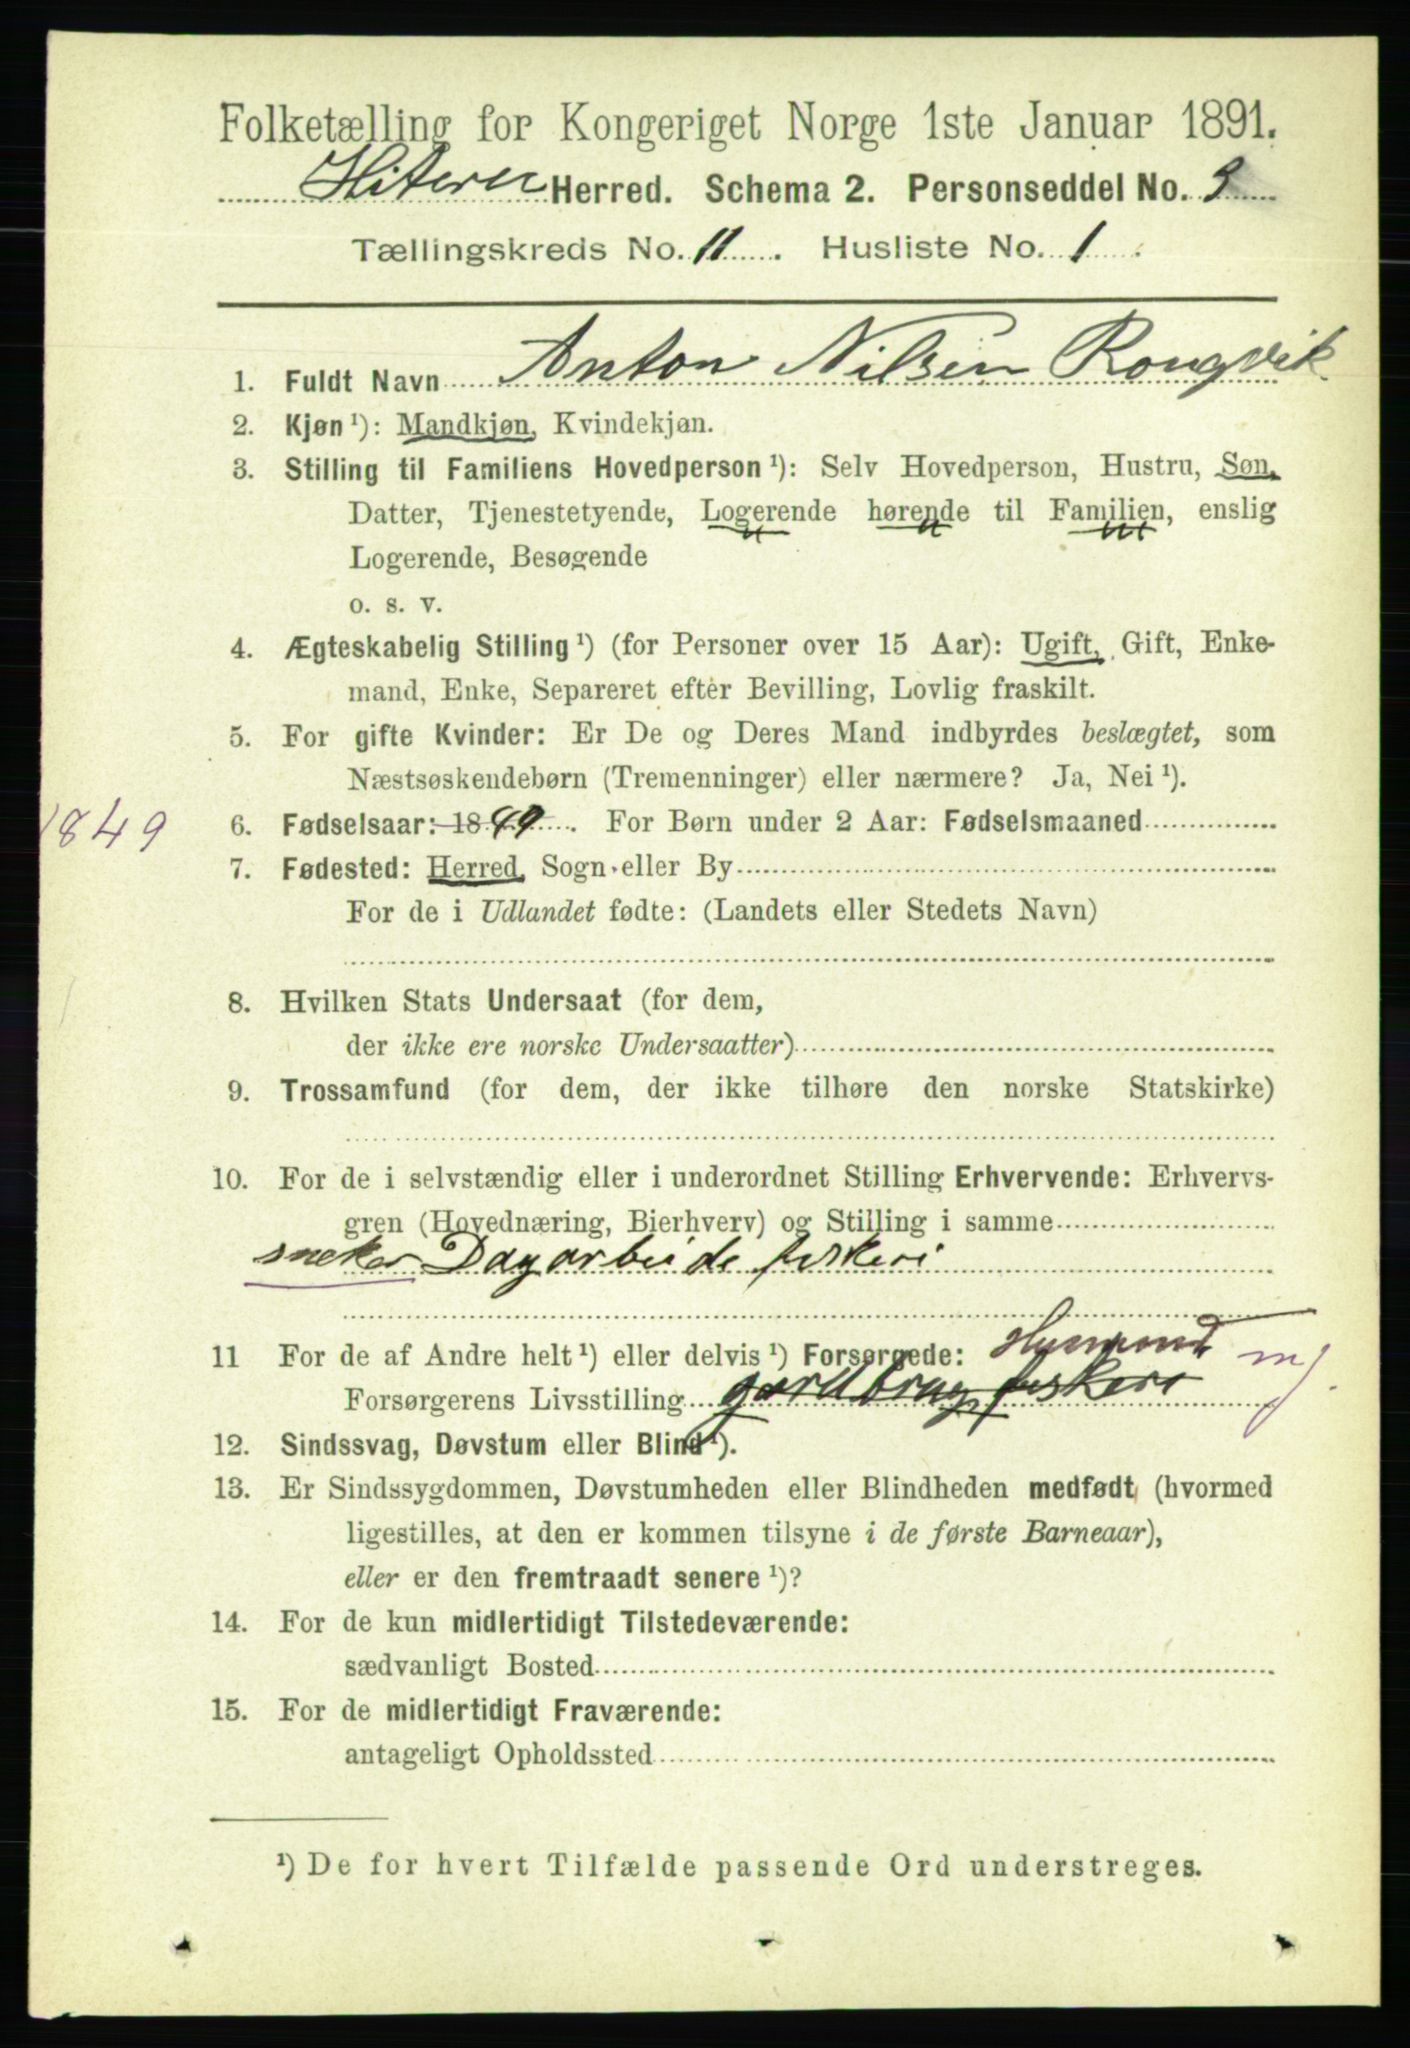 Folketælling for Kongeriget Norge 1ste Januar 1891.
Hiteren Herred. Schema 2. Personseddel No. 3
Tællingskreds No. 11. Husliste No. 1.
1. Fuldt Navn Anton Nilsen Rongvik
2. Kjøn ¹): Mandkjøn, Kvindekjøn.
3. Stilling til Familiens Hovedperson ¹): Selv Hovedperson, Hustru, Søn,
Datter, Tjenestetyende, Logerende hørende til Familien, enslig
Logerende, Besøgende
o. s. v.
4. Ægteskabelig Stilling ¹) (for Personer over 15 Aar): Ugift, Gift, Enke-
mand, Enke, Separeret efter Bevilling, Lovlig fraskilt.
5. For gifte Kvinder: Er De og Deres Mand indbyrdes beslægtet, som
Næstsøskendebørn (Tremenninger) eller nærmere? Ja, Nei ¹).
1849 6. Fødselsaar: 1849. For Børn under 2 Aar: Fødselsmaaned
7. Fødested: Herred, Sogn eller By
For de i Udlandet fødte: (Landets eller Stedets Navn)
8. Hvilken Stats Undersaat (for dem,
der ikke ere norske Undersaatter)
9. Trossamfund (for dem, der ikke tilhøre den norske Statskirke)
10. For de i selvstændig eller i underordnet Stilling Erhvervende: Erhvervs-
gren (Hovednæring, Bierhverv) og Stilling i samme
sneker Dagarbeide fiskeri
11 For de af Andre helt ¹) eller delvis ¹) Forsørgede:
Forsørgerens Livsstilling gardbrug fiskeri
12. Sindssvag, Døvstum eller Blind ¹).
13. Er Sindssygdommen, Døvstumheden eller Blindheden medfødt (hvormed
ligestilles, at den er kommen tilsyne i de første Barneaar),
eller er den fremtraadt senere ¹)?
14. For de kun midlertidigt Tilstedeværende:
sædvanligt Bosted
15. For de midlertidigt Fraværende:
antageligt Opholdssted
¹) De for hvert Tilfælde passende Ord understreges.